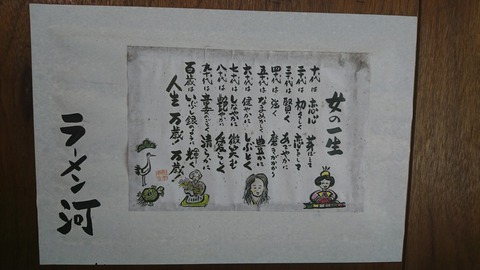 女の一生
十代は 恋心 芽ばえて
二十代は 初々しく 恋をして
三十代は 賢く あでやかに
四十代は 強く 磨きがかかり
五十代は なまめかしく 豊かに
六十代は 健やかに しぶとく
七十代は しなやかに 微笑む
八十代は 艶やかに 愛らしく
九十代は 童女のごとく 清らかに
百歳は いぶし銀のように 輝く
人生 万歳! 万歳!
ラーメン河